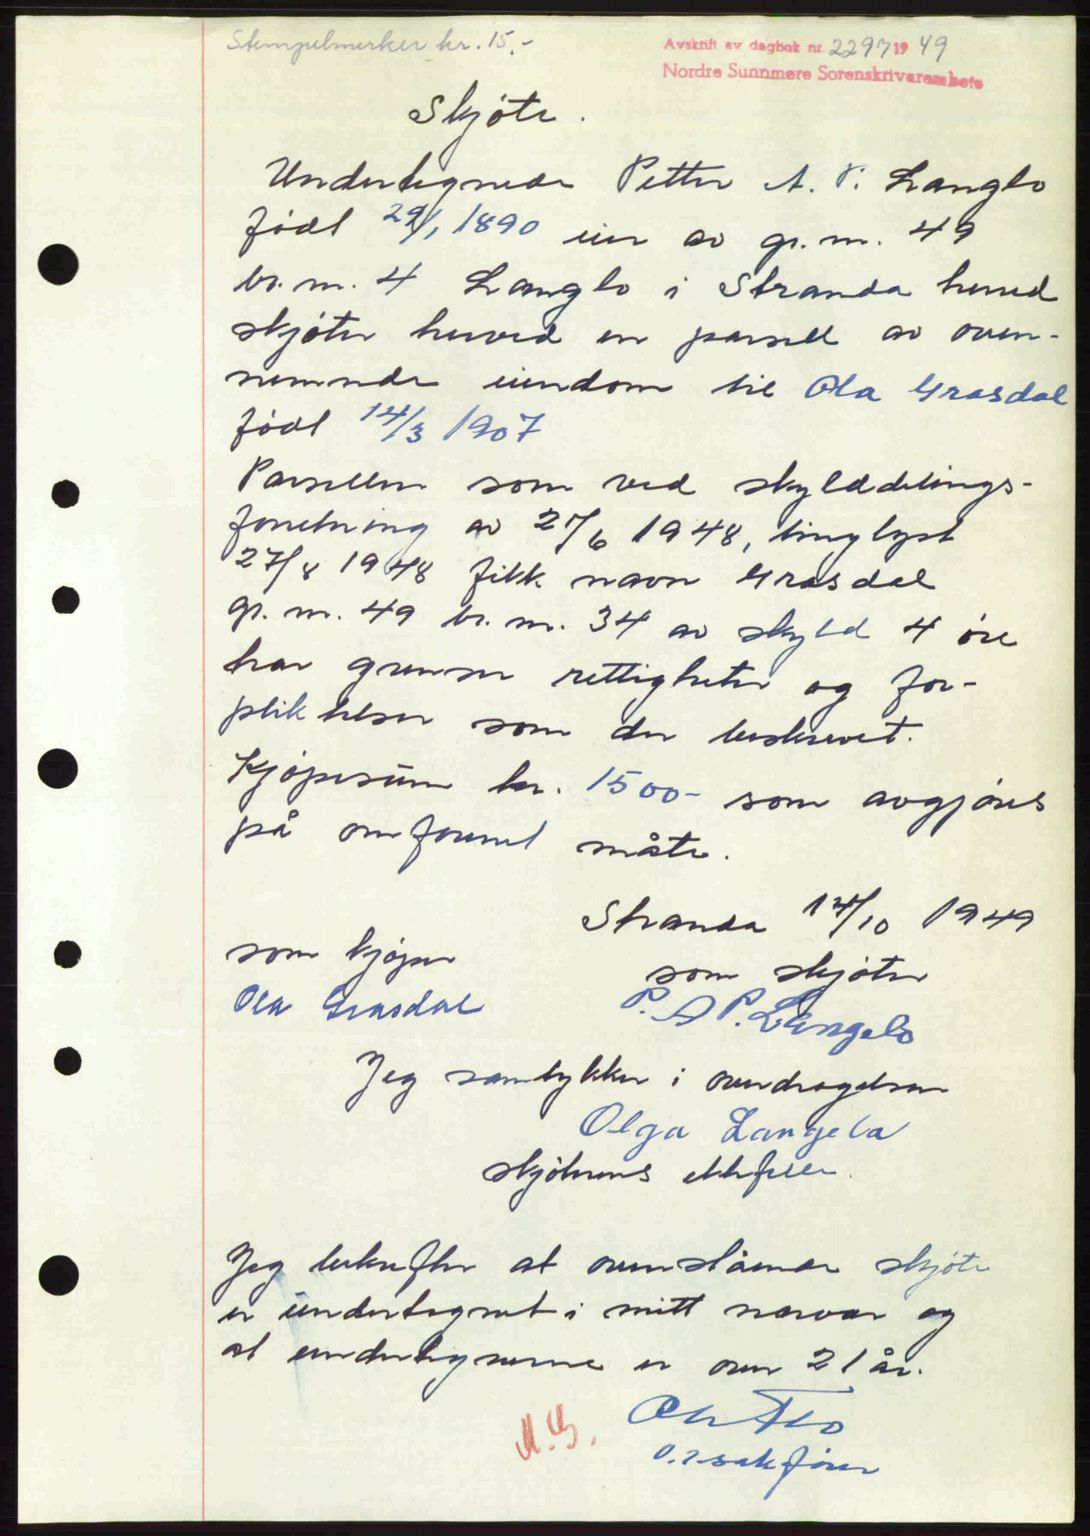 Stempelmerker kr. 15.-
Avskrift av dagbok nr. 2297 19 49
Nordre Sunnmøre Sorenskrivarembete
Skjøte.
Undertegnede Petter A. P. Langlo
født 29/1 1890 eier av gr. nr. 49
br. nr. 4 Langlo i Stranda herred
skjøter herved en parsell av oven-
nevnnde eiendom til Ola Grasdal
født 14/3 1907
Parsellen som ved skylddelings-
forretning av 27/6 1948, tinglyst
27/8 1948 fikk navn Grasdal
gr. nr. 49 br. nr. 34 av skyld 4 øre
har grenser rettigheter og for-
pliktelser som der beskrevet.
Kjøpesum kr. 1500- som avgjøres
på omforenet måte.
Stranda 14/10 1949
som kjøper
som skjøter
Ola Grasdal
P. A P. Langelo
Jeg samtykker i overdragelsen
Olga Langelo
skjøterens ektefelle.
Jeg bekrefter at ovenstående skjøte
er undertegnet i mitt nærvær og
at undertegnerne er over 21 år.
Ola Flo
o.r.sakfører